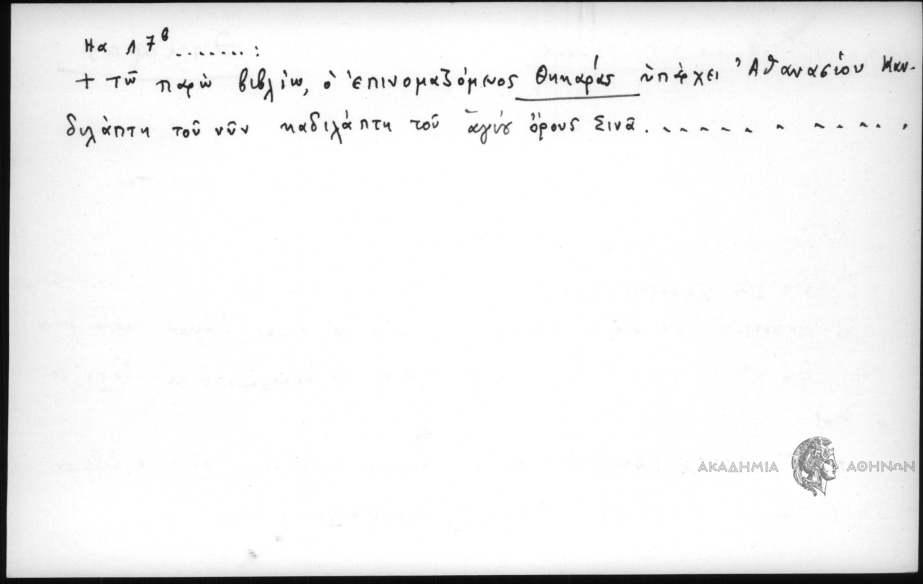 Ηα Λ 7β ........ :
+ τῶ παρὼ βιβλίω, ὁ ἐπινομαζόμενος Θηκαρᾶς ὑπάρχει Ἀθανασίου Καν-
διλάπτη τοῦ νῦν καδιλάπτη τοῦ ἁγίου ὄρους Σινᾶ. . . . . . . . . . .
ΑΚΑΔΗΜΙΑ ΑΘΗΝΩΝ